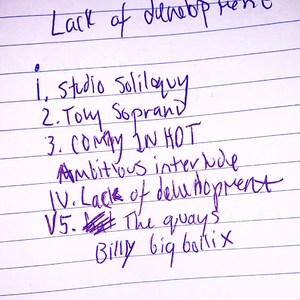 Lack of development
i. Studio Soliloquy
2. Tony Soprano
3. Coming IN HOT
Ambitious interlude
IV. Lack of development
V5. The quays
Billy big bollix